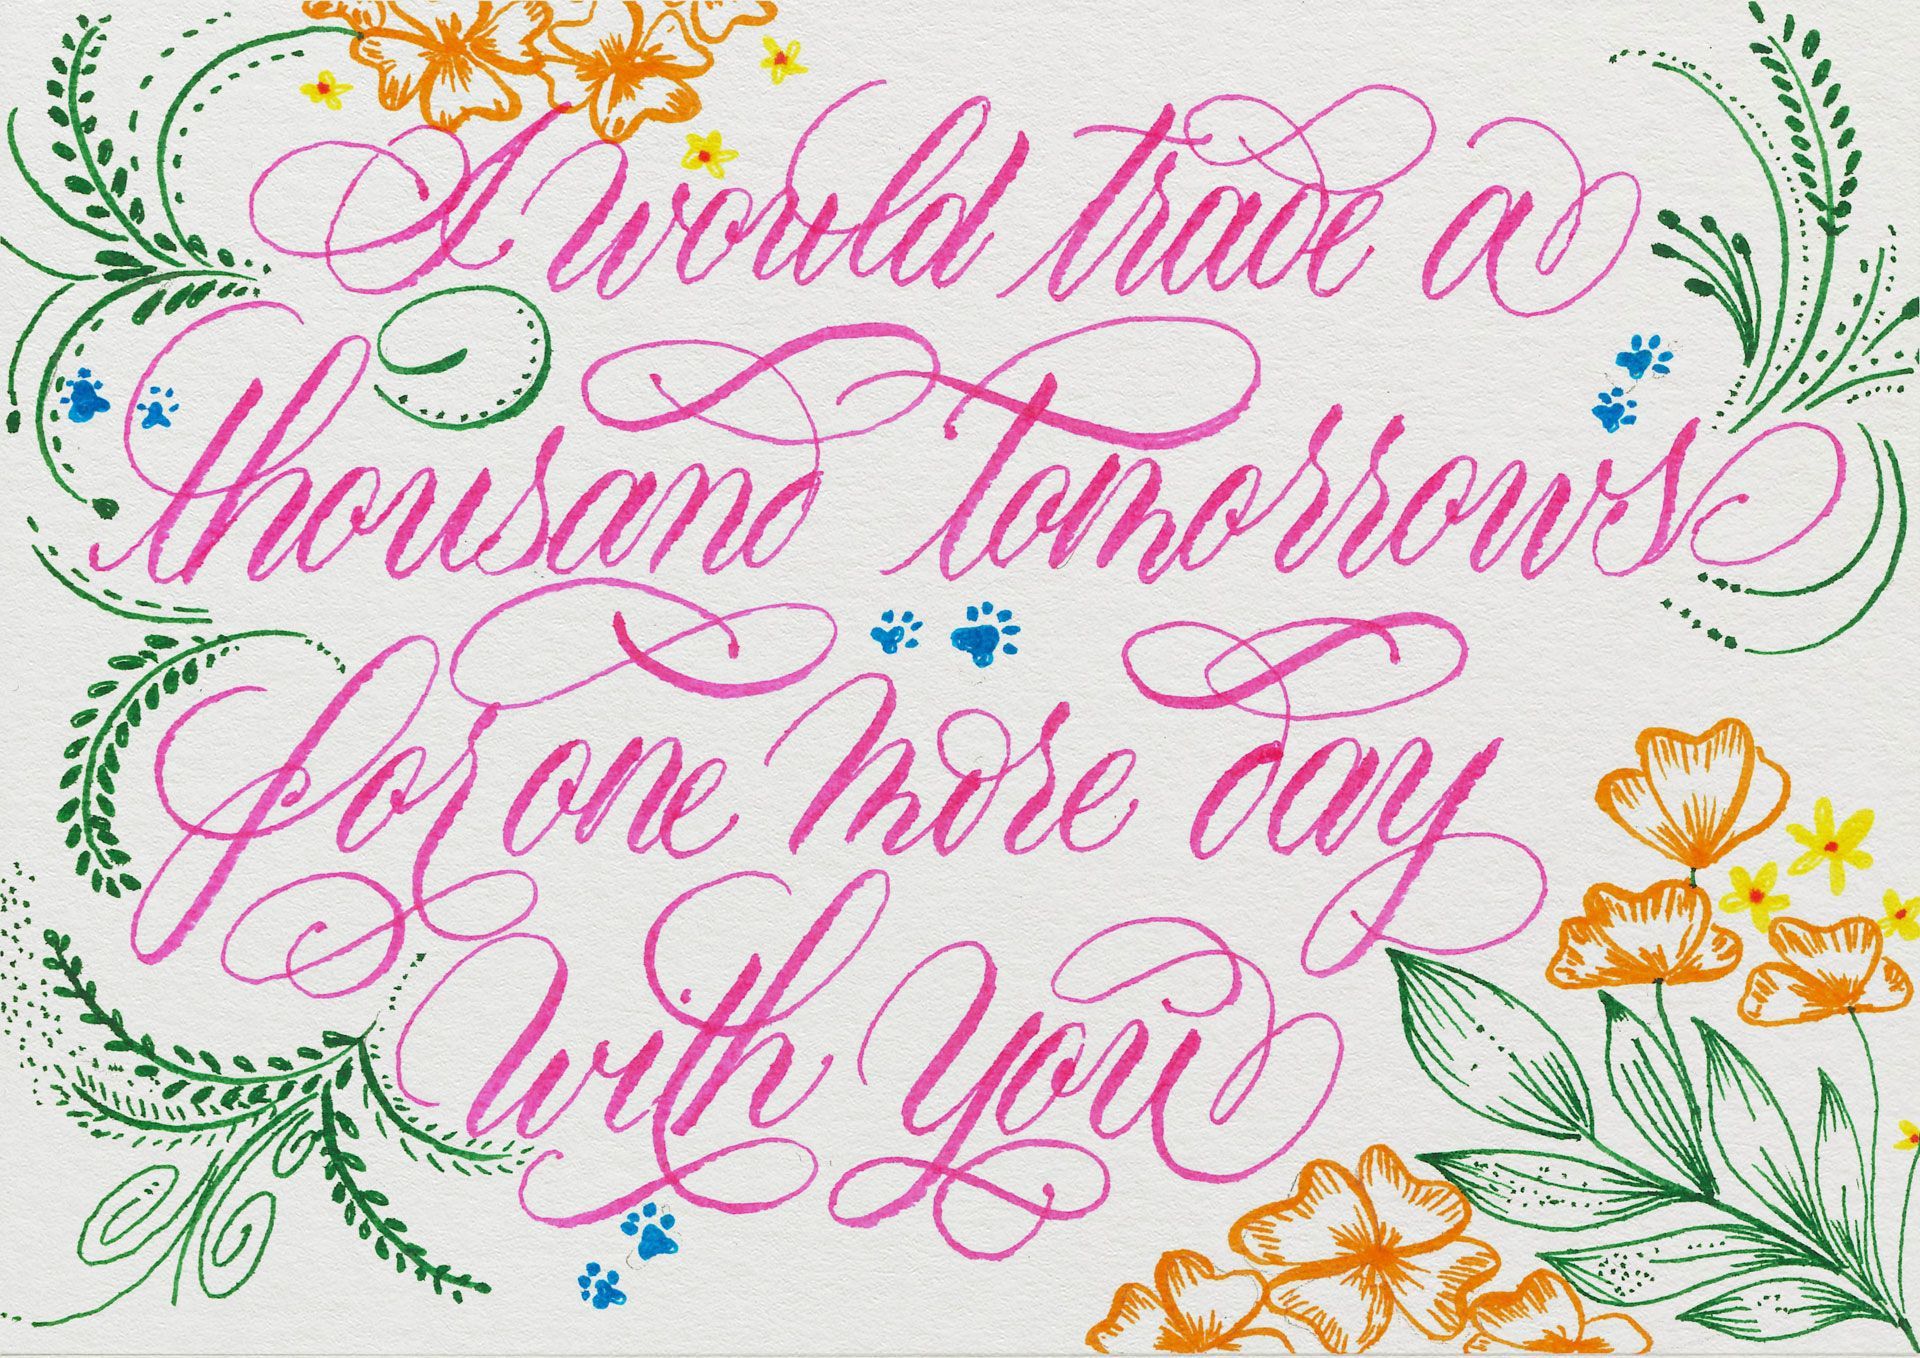 I would trade a
thousand tomorrows
for one more day
with you